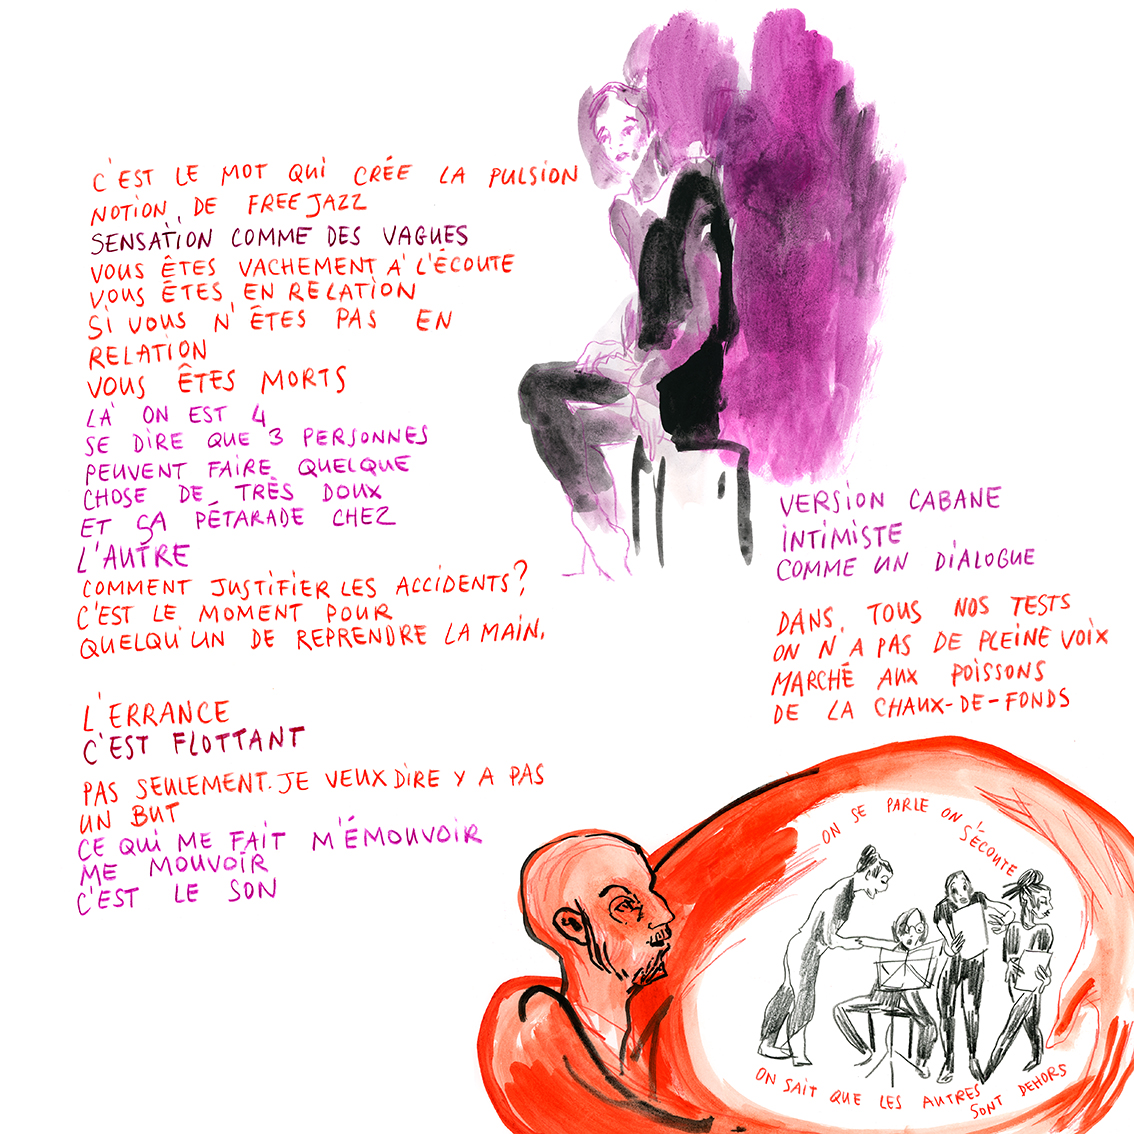 C'EST LE MOT QUI CRÉE LA PULSION
NOTION DE FREE JAZZ
SENSATION COMME DES VAGUES
VOUS ÊTES VACHEMENT À L'ÉCOUTE
VOUS ÊTES EN RELATION
SI VOUS N'ÊTES PAS EN
RELATION
VOUS ÊTES MORTS
LÀ ON EST 4
SE DIRE QUE 3 PERSONNES
PEUVENT FAIRE QUELQUE
CHOSE DE TRÈS DOUX
ET ÇA PÉTARADE CHEZ
L'AUTRE
COMMENT JUSTIFIER LES ACCIDENTS?
C'EST LE MOMENT POUR
QUELQU'UN DE REPRENDRE LA MAIN.
L'ERRANCE
C'EST FLOTTANT
PAS SEULEMENT. JE VEUX DIRE Y A PAS
UN BUT
CE QUI ME FAIT M'ÉMOUVOIR
ME MOUVOIR
C'EST LE SON
VERSION CABANE
INTIMISTE
COMME UN DIALOGUE
DANS TOUS NOS TESTS
ON N'A PAS DE PLEINE VOIX
MARCHÉ AUX POISSONS
DE LA CHAUX-DE-FONDS
ON SE PARLE ON S'ÉCOUTE
ON SAIT QUE LES AUTRES
SONT DEHORS